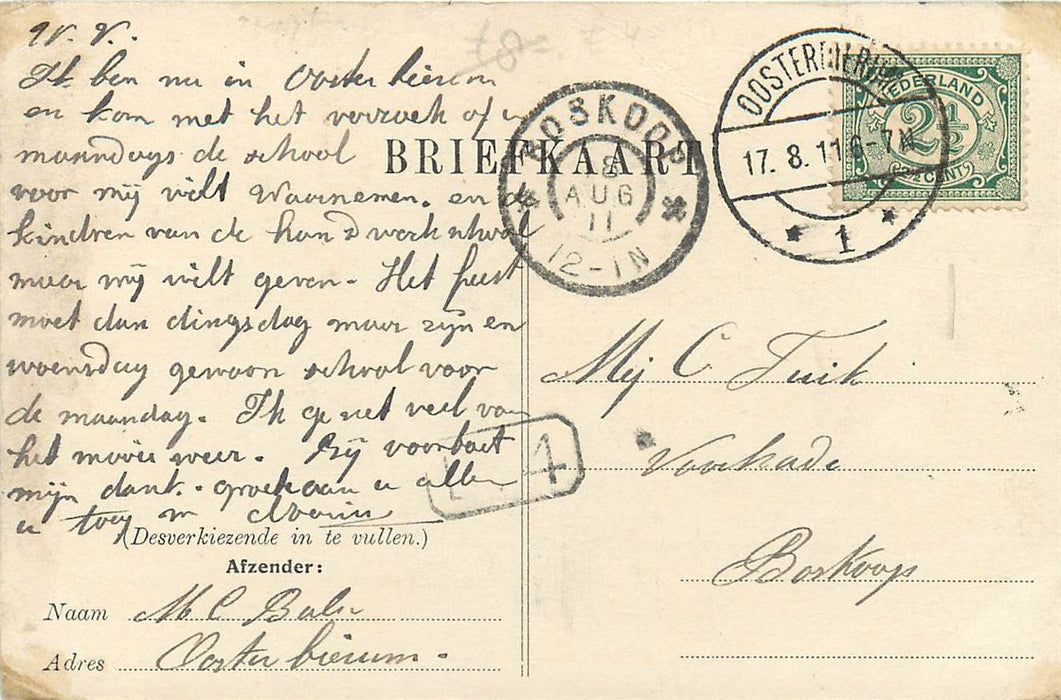 W. V.
Ik ben nu in Oosterbierum
en kom met het verzoek of u
maandags de school
voor mij wilt Waarnemen. en de
kindren van de handwerkschool
maar vrij wilt geven. Het feest
moet dan dingsdag maar zijn en
woensdag gewoon school voor
de maandag. Ik geniet veel van
het mooie weer. Bij voorbaat
mijn dank. groet aan u allen
u toeg
(Desverkiezende in te vullen.)
Afzender:
Naam M C
Adres Oosterbierum.
BRIEFKAART
BOSKOOP
18
AUG
11
12-1N
OOSTERBIERUM
17. 8. 11 6-7N
1
NEDERLAND
2½
CENT
4
Mej C Tuik
Voorkade
Boskoop